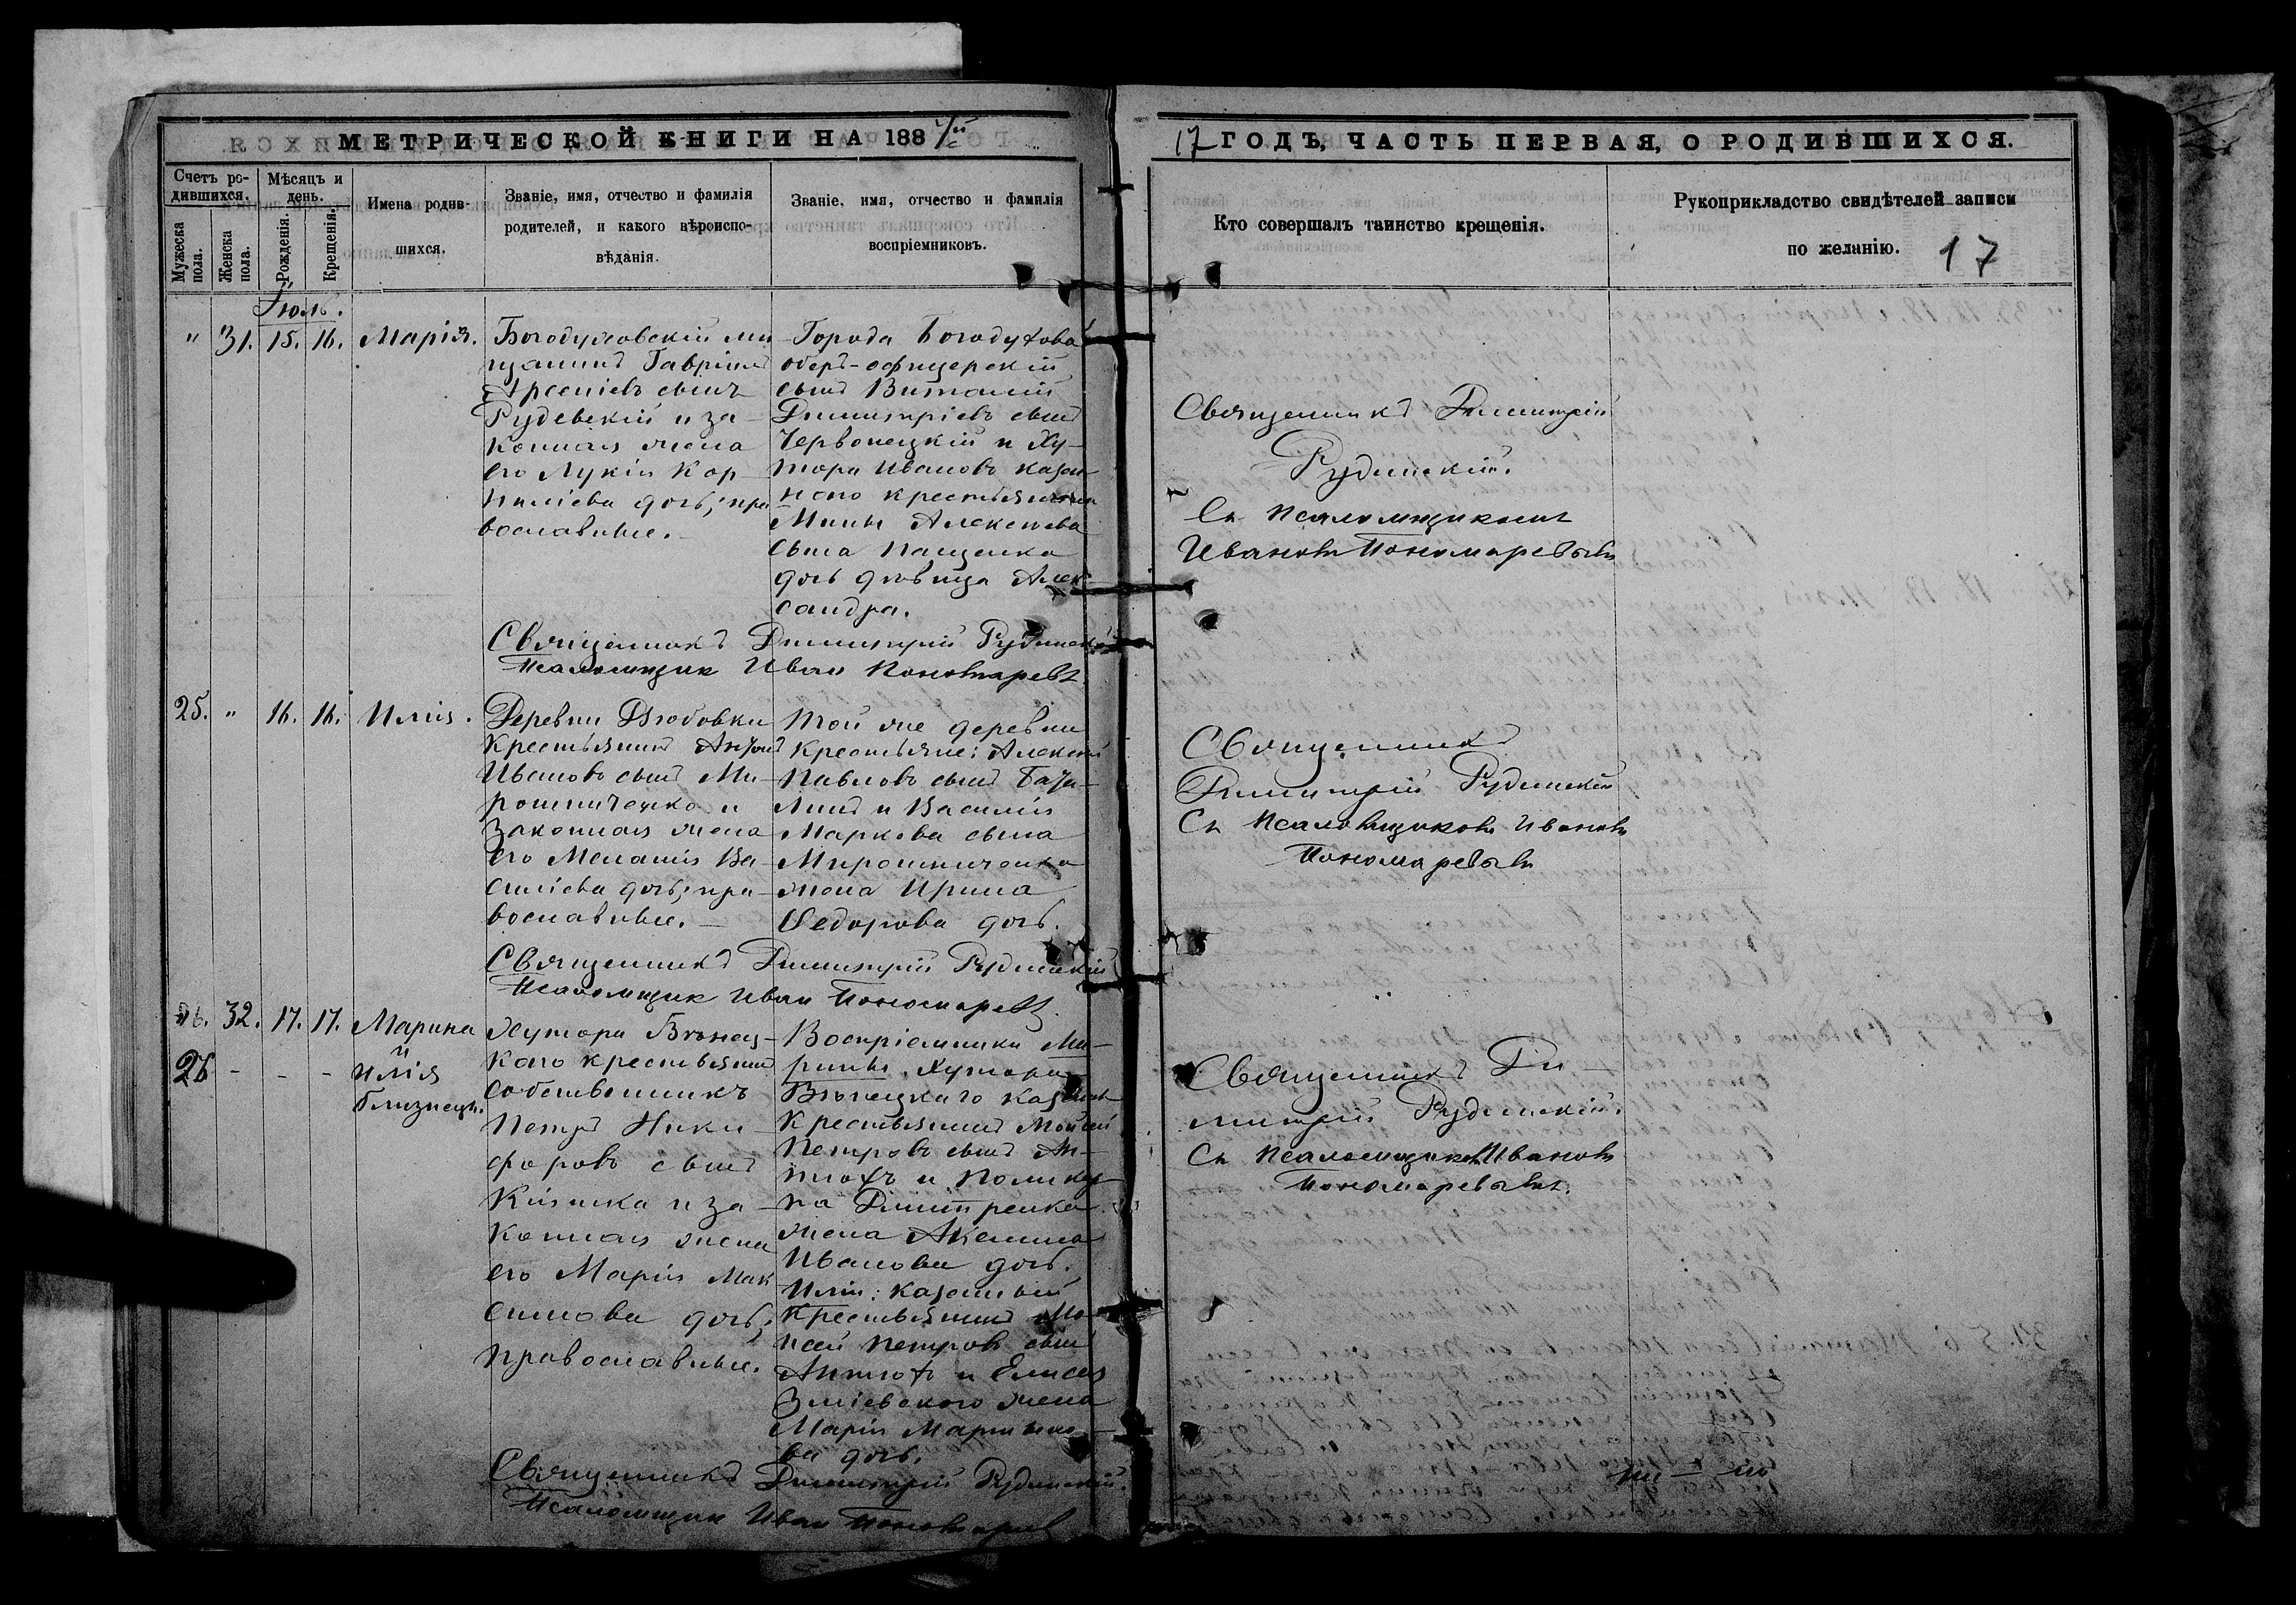 МЕТРИЧЕСКОЙ КНИГИ НА 188
17 ГОДЪ, ЧАСТЬ ПЕРВАЯ, О РОДИВШИХСЯ.
Счетъ ро-
дившихся.
Мужеска пола.
Женска пола.
Мѣсяцъ и
день.
Рожденія.
Крещенія.
Имена родив-
шихся.
Званіе, имя, отчество и фамилія
родителей, и какого вѣроиспо-
вѣданія.
Званіе, имя, отчество и фамилія
воспріемниковъ.
Кто совершалъ таинство крещенія.
Рукоприкладство свидѣтелей записи
по желанію.
17
Іюль.
" 31. 15. 16. Марія.
Богодуховскій мѣ
щанинъ Гавріилъ
Арсеніевъ сынъ
и за-
конная жена
его Лукія Кор-
ниліева дочь; пра
вославные.
Города Богодухова
оберъ-офицерскій
сынъ Виталій
Димитріевъ сынъ
Червонецкій и Ху-
тора Иванова казен
наго крестьянина
Алексѣева
сына Пащенка
дочь дѣвица Алек-
сандра.
Священникъ Димитрій
Рудинскій.
Съ Псаломщикомъ
Иваномъ Пономаревымъ
Священникъ Димитрій Рудинскій
Псаломщик Иван Пономаревъ.
25. " 16. 16. Илія.
Деревни
крестьянинъ
Ивановъ сынъ Ми-
рошниченко и
законная жена
его Меланія Ва-
силіева дочь; пра-
вославные.
Той же деревни
крестьяне: Алексѣй
Павловъ сынъ
и Василія
Маркова сына
Мирошниченка
жена Ирина
Ѳедорова дочь.
Священникъ
Димитрій Рудинскій
Съ Псаломщикомъ Иваномъ
Пономаревымъ
Священникъ Димитрій Рудинскій
Псаломщик Иван Пономаревъ.
32. 17. 17. Марина
и
26 - - - Илія
близнецы.
Хутора
каго крестьянинъ
собственникъ
Петръ Ники-
форовъ сынъ
и за-
конная жена
его Марія Мак
симова дочь;
православные.
Воспріемники Ма-
рины: Хутора
казен
крестьянинъ Мойсей
Петровъ сынъ Ан-
тюхъ и Поликар-
па Димитренка
жена Акилина
Иванова дочь.
Иліи: казенный
крестьянинъ Мо-
исей Петровъ сынъ
Антюхъ и Елисея
Зміевскаго жена
Марія Мартыно-
ва дочь.
Священникъ Ди-
митрій Рудинскій.
Съ Псаломщикомъ Иваномъ
Пономаревымъ.
Священникъ Димитрій Рудинскій.
Псаломщик Иван Пономарев